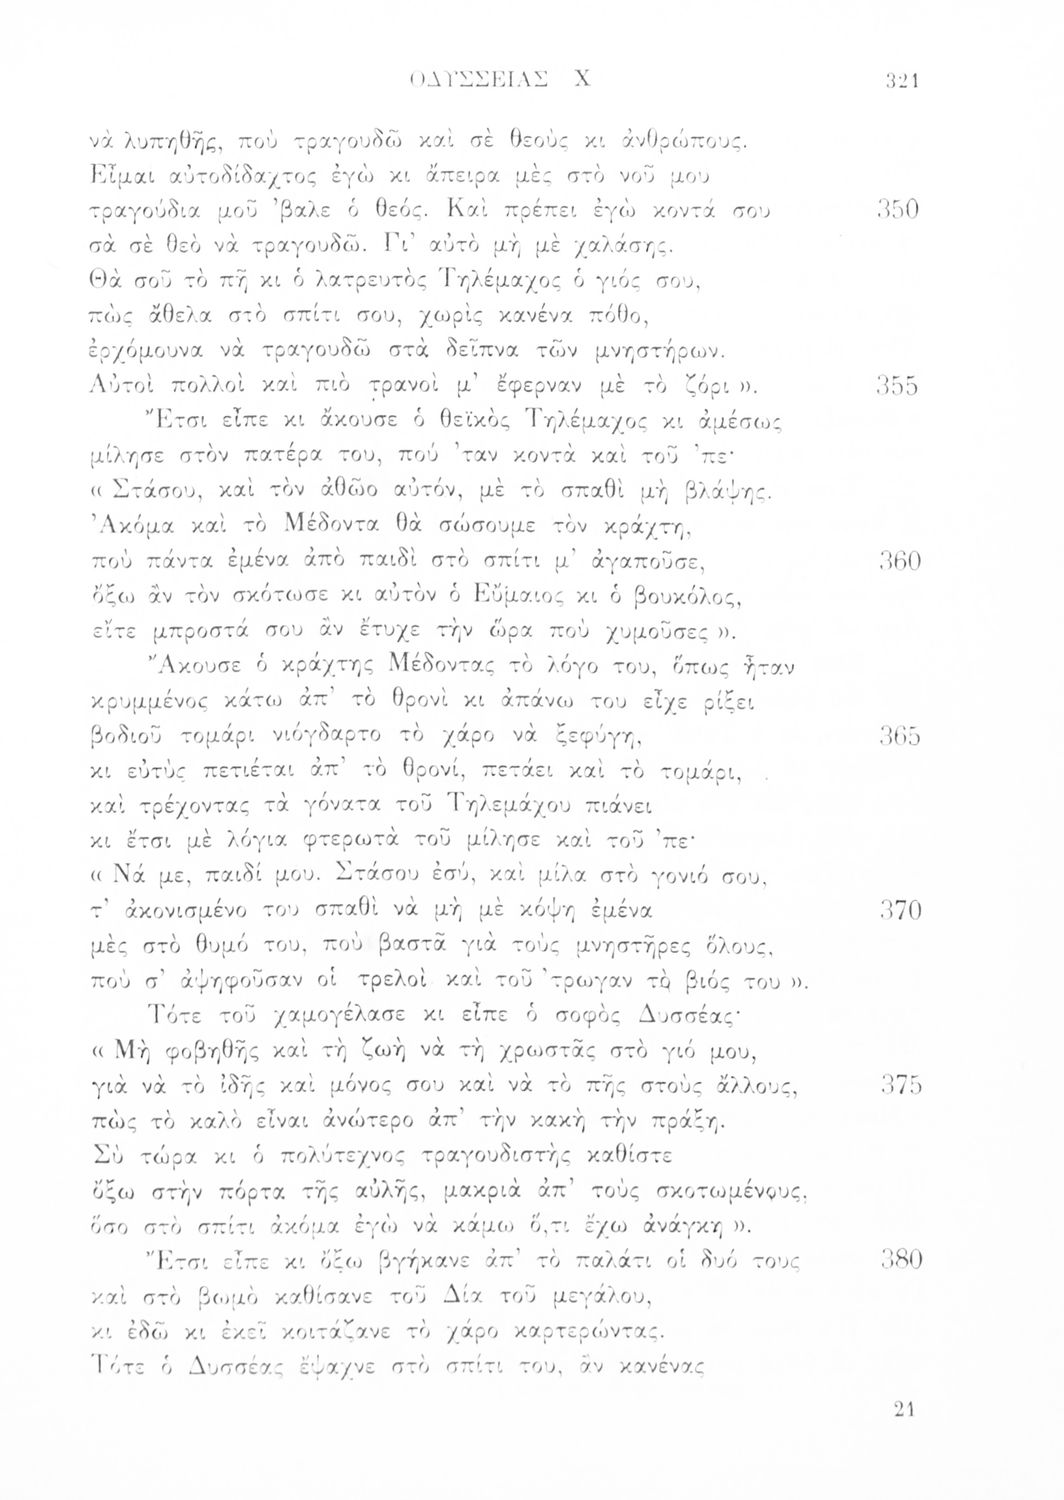 ΟΔΥΣΣΕΙΑΣ Χ 321
νὰ λυπηθῆς, ποὺ τραγουδῶ καὶ σὲ θεοὺς κι ἀνθρώπους.
Εἶμαι αὐτοδίδαχτος ἐγὼ κι ἄπειρα μὲς στὸ νοῦ μου
τραγούδια μοῦ ᾽βαλε ὁ θεός. Καὶ πρέπει ἐγὼ κοντά σου 350
σὰ σὲ θεὸ νὰ τραγουδῶ. Γι᾽ αὐτὸ μὴ μὲ χαλάσης.
Θὰ σοῦ τὸ πῆ κι ὁ λατρευτὸς Τηλέμαχος ὁ γιός σου,
πὼς ἄθελα στὸ σπίτι σου, χωρὶς κανένα πόθο,
ἐρχόμουνα νὰ τραγουδῶ στὰ δεῖπνα τῶν μνηστήρων.
Αὐτοὶ πολλοὶ καὶ πιὸ τρανοὶ μ᾽ ἔφερναν μὲ τὸ ζόρι ». 355
Ἔτσι εἶπε κι ἄκουσε ὁ θεϊκὸς Τηλέμαχος κι ἀμέσως
μίλησε στὸν πατέρα του, πού ᾽ταν κοντὰ καὶ τοῦ ᾽πε·
« Στάσου, καὶ τὸν ἀθῶο αὐτόν, μὲ τὸ σπαθὶ μὴ βλάψης.
Ἀκόμα καὶ τὸ Μέδοντα θὰ σώσουμε τὸν κράχτη,
ποὺ πάντα ἐμένα ἀπὸ παιδὶ στὸ σπίτι μ᾽ ἀγαποῦσε, 360
ὄξω ἂν τὸν σκότωσε κι αὐτὸν ὁ Εὔμαιος κι ὁ βουκόλος,
εἴτε μπροστά σου ἂν ἔτυχε τὴν ὥρα ποὺ χυμοῦσες ».
Ἄκουσε ὁ κράχτης Μέδοντας τὸ λόγο του, ὅπως ἦταν
κρυμμένος κάτω ἀπ᾽ τὸ θρονὶ κι ἀπάνω του εἶχε ρίξει
βοδιοῦ τομάρι νιόγδαρτο τὸ χάρο νὰ ξεφύγη, 365
κι εὐτὺς πετιέται ἀπ᾽ τὸ θρονί, πετάει καὶ τὸ τομάρι,
καὶ τρέχοντας τὰ γόνατα τοῦ Τηλεμάχου πιάνει
κι ἔτσι μὲ λόγια φτερωτὰ τοῦ μίλησε καὶ τοῦ ᾽πε·
« Νά με, παιδί μου. Στάσου ἐσύ, καὶ μίλα στὸ γονιό σου,
τ᾽ ἀκονισμένο του σπαθὶ νὰ μὴ μὲ κόψη ἐμένα 370
μὲς στὸ θυμό του, ποὺ βαστᾶ γιὰ τοὺς μνηστῆρες ὅλους,
ποὺ σ᾽ ἀψηφοῦσαν οἱ τρελοὶ καὶ τοῦ ᾽τρωγαν τὸ βιός του ».
Τότε τοῦ χαμογέλασε κι εἶπε ὁ σοφὸς Δυσσέας·
« Μὴ φοβηθῆς καὶ τὴ ζωὴ νὰ τὴ χρωστᾶς στὸ γιό μου,
γιὰ νὰ τὸ ἰδῆς καὶ μόνος σου καὶ νὰ τὸ πῆς στοὺς ἄλλους, 375
πὼς τὸ καλὸ εἶναι ἀνώτερο ἀπ᾽ τὴν κακὴ τὴν πράξη.
Σὺ τώρα κι ὁ πολύτεχνος τραγουδιστὴς καθίστε
ὄξω στὴν πόρτα τῆς αὐλῆς, μακριὰ ἀπ᾽ τοὺς σκοτωμένους,
ὅσο στὸ σπίτι ἀκόμα ἐγὼ νὰ κάμω ὅ,τι ἔχω ἀνάγκη ».
Ἔτσι εἶπε κι ὄξω βγήκανε ἀπ᾽ τὸ παλάτι οἱ δυό τους 380
καὶ στὸ βωμὸ καθίσανε τοῦ Δία τοῦ μεγάλου,
κι ἐδῶ κι ἐκεῖ κοιτάζανε τὸ χάρο καρτερώντας.
Τότε ὁ Δυσσέας ἔψαχνε στὸ σπίτι του, ἂν κανένας
21